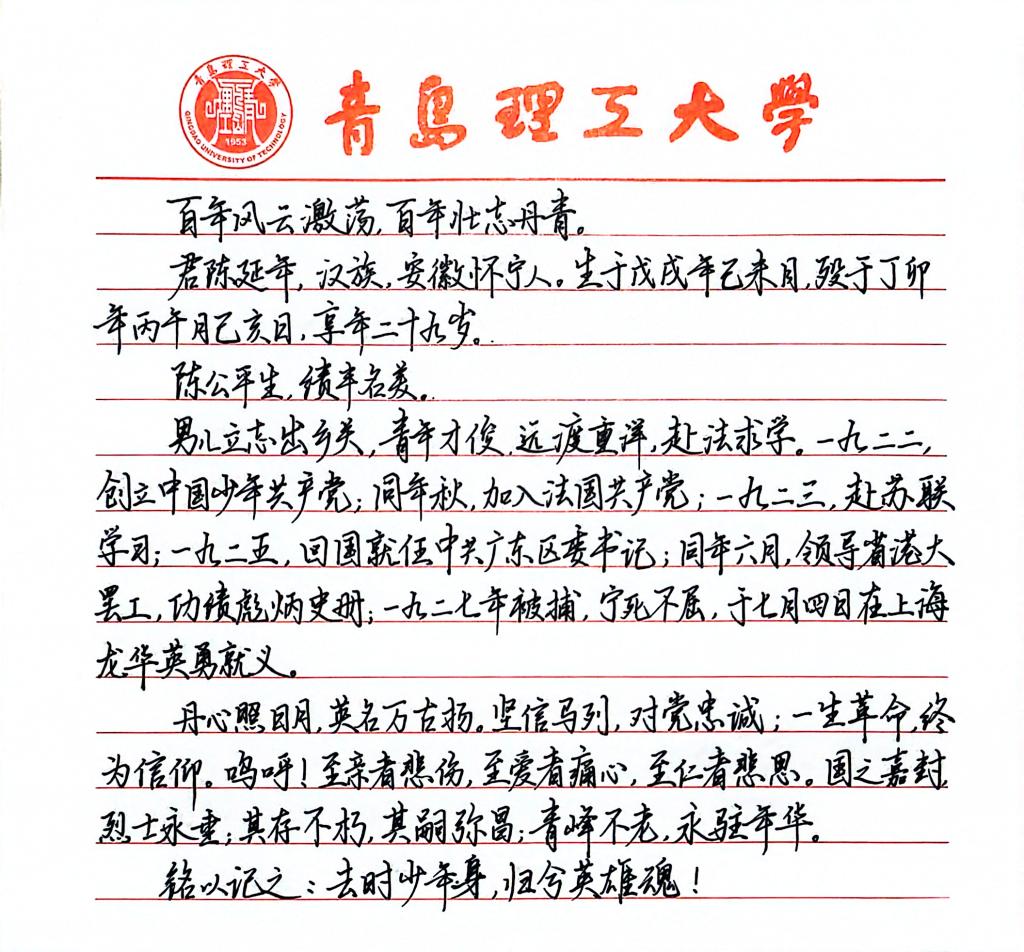 青島理工大學
QINGDAO UNIVERSITY OF TECHNOLOGY
1953
青島理工大學
百年风云激荡,百年壮志丹青。
君陈延年,汉族,安徽怀宁人。生于戊戌年己未月,殁于丁卯
年丙午月己亥日,享年二十九岁。
陈公平生,绩丰名美。
男儿立志出乡关,青年才俊,远渡重洋,赴法求学。一九二二,
创立中国少年共产党;同年秋,加入法国共产党;一九二三,赴苏联
学习;一九二五,回国就任中共广东区委书记;同年六月,领导省港大
罢工,功绩彪炳史册;一九二七年被捕,宁死不屈,于七月四日在上海
龙华英勇就义。
丹心照日月,英名万古扬。坚信马列,对党忠诚;一生革命,终
为信仰。呜呼!至亲者悲伤,至爱者痛心,至仁者悲思。国之嘉封,
烈士永垂;其存不朽,其嗣弥昌;青峰不老,永驻年华。
铭以记之:去时少年身,归兮英雄魂!